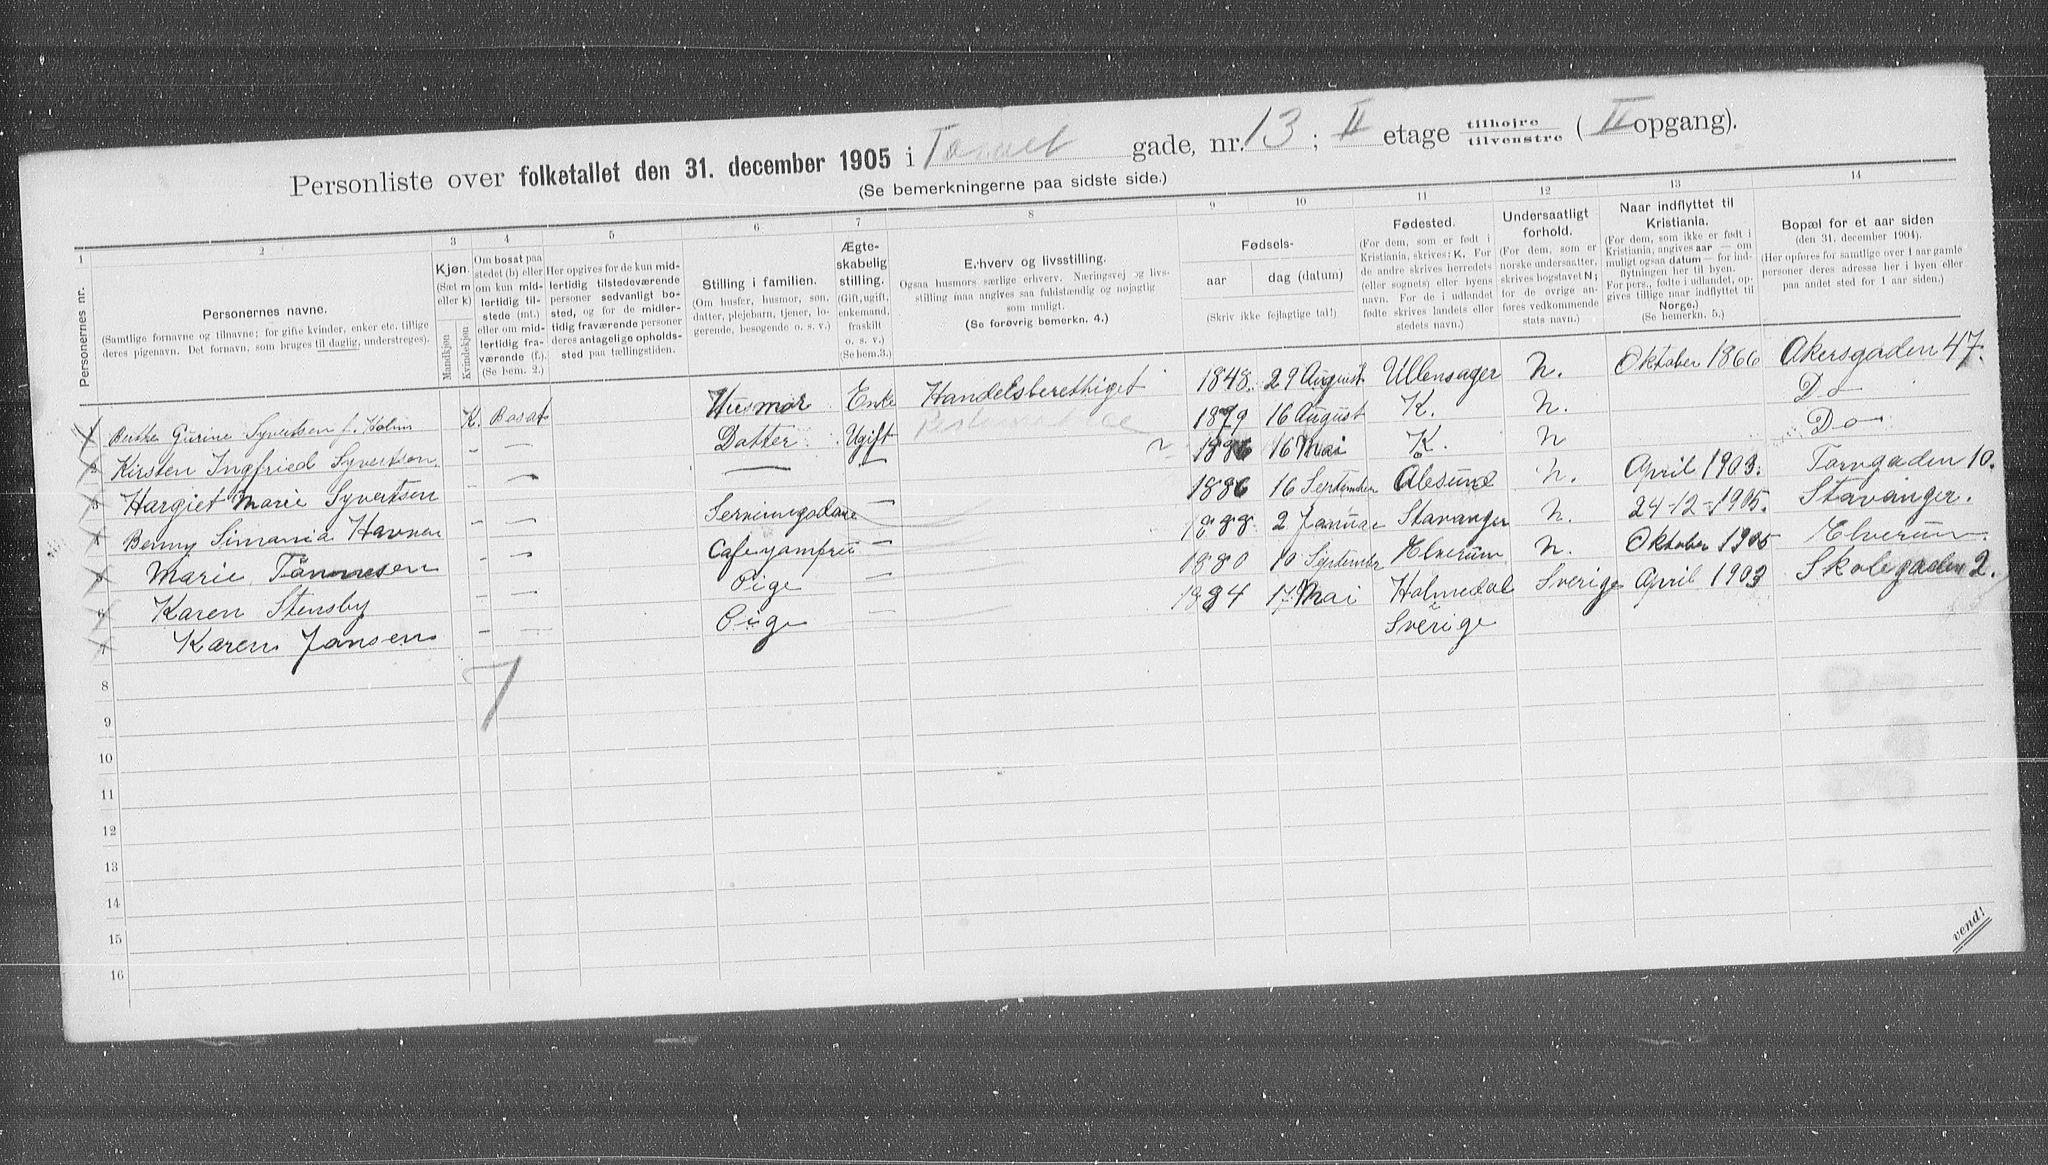 Personliste over folketallet den 31. december 1905 i Torvet gade, nr. 13 ; II etage tilhøjre tilvenstre ( II opgang).
(Se bemerkningerne paa sidste side.)
1 2 3 4 5 6 7 8 9 10 11 12 13 14
Personernes nr.
Personernes navne.
(Samtlige fornavne og tilnavne; for gifte kvinder, enker etc. tillige
deres pigenavn. Det fornavn, som bruges til daglig, understreges).
Kjøn.
(Sæt m
eller k)
Mandkjøn
Kvindekjøn
Om bosat paa
stedet (b) eller
om kun mid-
lertidig til-
stede (mt.)
eller om mid-
lertidig fra-
værende (f.)
(Se bem. 2.)
Her opgives for de kun mid-
lertidig tilstedeværende
personer sedvanligt bo-
sted, og for de midler-
tidig fraværende personer
deres antagelige opholds-
sted paa tællingstiden.
Stilling i familien.
(Om husfer, husmor, søn,
datter, plejebarn, tjener, lo-
gerende, besøgende o. s. v.)
Ægte-
skabelig
stilling.
(Gift, ugift,
enkemand,
fraskilt
o. s. v.)
(Se bem. 3.)
Erhverv og livsstilling.
Ogsaa husmors særlige erhverv. Næringsvej og livs-
stilling maa angives saa fuldstændig og nøjagtig
som muligt.
(Se forøvrig bemerkn. 4.)
Fødsels-
aar dag (datum)
(Skriv ikke fejlagtige tal!)
Fødested.
(For dem, som er født i
Kristiania, skrives: K. For
de andre skrives herredets
(eller sognets) eller byens
navn. For de i udlandet
fødte skrives landets eller
stedets navn.)
Undersaatligt
forhold.
(For dem, som er
norske undersaatter,
skrives bogstavet N;
for de øvrige an-
føres vedkommende
stats navn.)
Naar indflyttet til
Kristiania.
(For dem, som ikke er født i
Kristiania, angives aar — om
muligt ogsaa datum — for ind-
flytningen her til byen.
For pers., fødte i udlandet, op-
gives tillige naar indflyttet til
Norge.)
(Se bemerkn. 5.)
Bopæl for et aar siden
(den 31. december 1904).
(Her opføres for samtlige over 1 aar gamle
personer deres adresse her i byen eller
paa andet sted for 1 aar siden.)
1 Berthe Gurine Syvertsen f. Holm K. Bosat Husmor Enke Handelsberettiget 1848. 29 August Ullensager N. Oktober 1866 Akersgaden 47.
2 Kirsten Ingfried Syvertsen - - Datter Ugift 1879 16 August K. N. Do
3 Hargiet Marie Syvertsen - - — — 1886 16 Mai K. N Do
4 Benny Simania Havnen - - Serveringsdame — 1886 16 September Alesund N. April 1903. Torvgaden 10.
5 Marie Tönnesen - - Cafejomfru — 1888 2 Januar Stavanger N. 24-12-1905. Stavanger.
6 Karen Stensby - - Pige — 1880 10 September Elverum N. Oktober 1905 Elverum.
7 Karen Jansen - - Pige — 1884 17 Mai Holmedal Sverige April 1903 Skolegaden 2.
Sverige
7
8
9
10
11
12
13
14
15
16
vend!